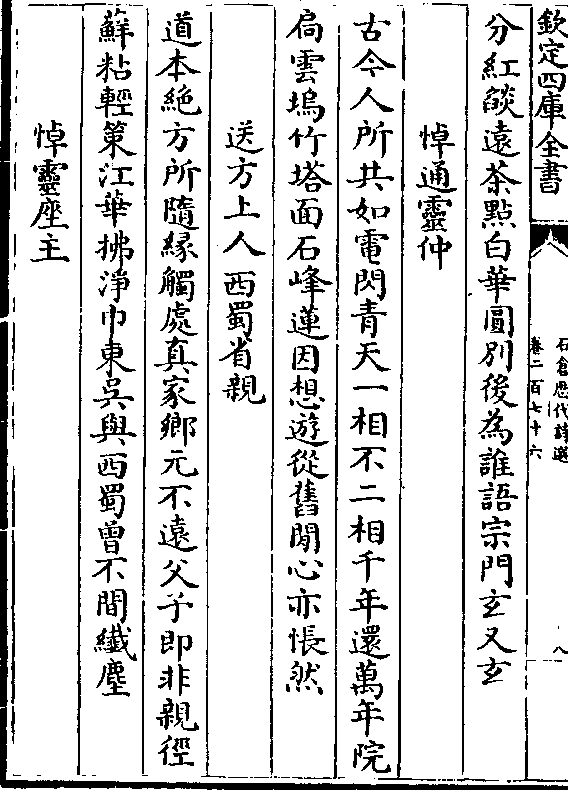 欽定四庫全書
石倉歷代詩選
卷二百七十六
八
分紅燄遠茶點白華圓別後為誰語宗門玄又玄
悼通靈仲
古今人所共如電閃青天一相不二相千年還萬年院
扃雲塢竹塔面石峰蓮因想遊從舊閒心亦悵然
送方上人西蜀省親
道本絶方所隨緣觸處真家鄉元不遠父子即非親徑
蘚粘輕策江華拂淨巾東吳與西蜀曾不間纖塵
悼靈座主